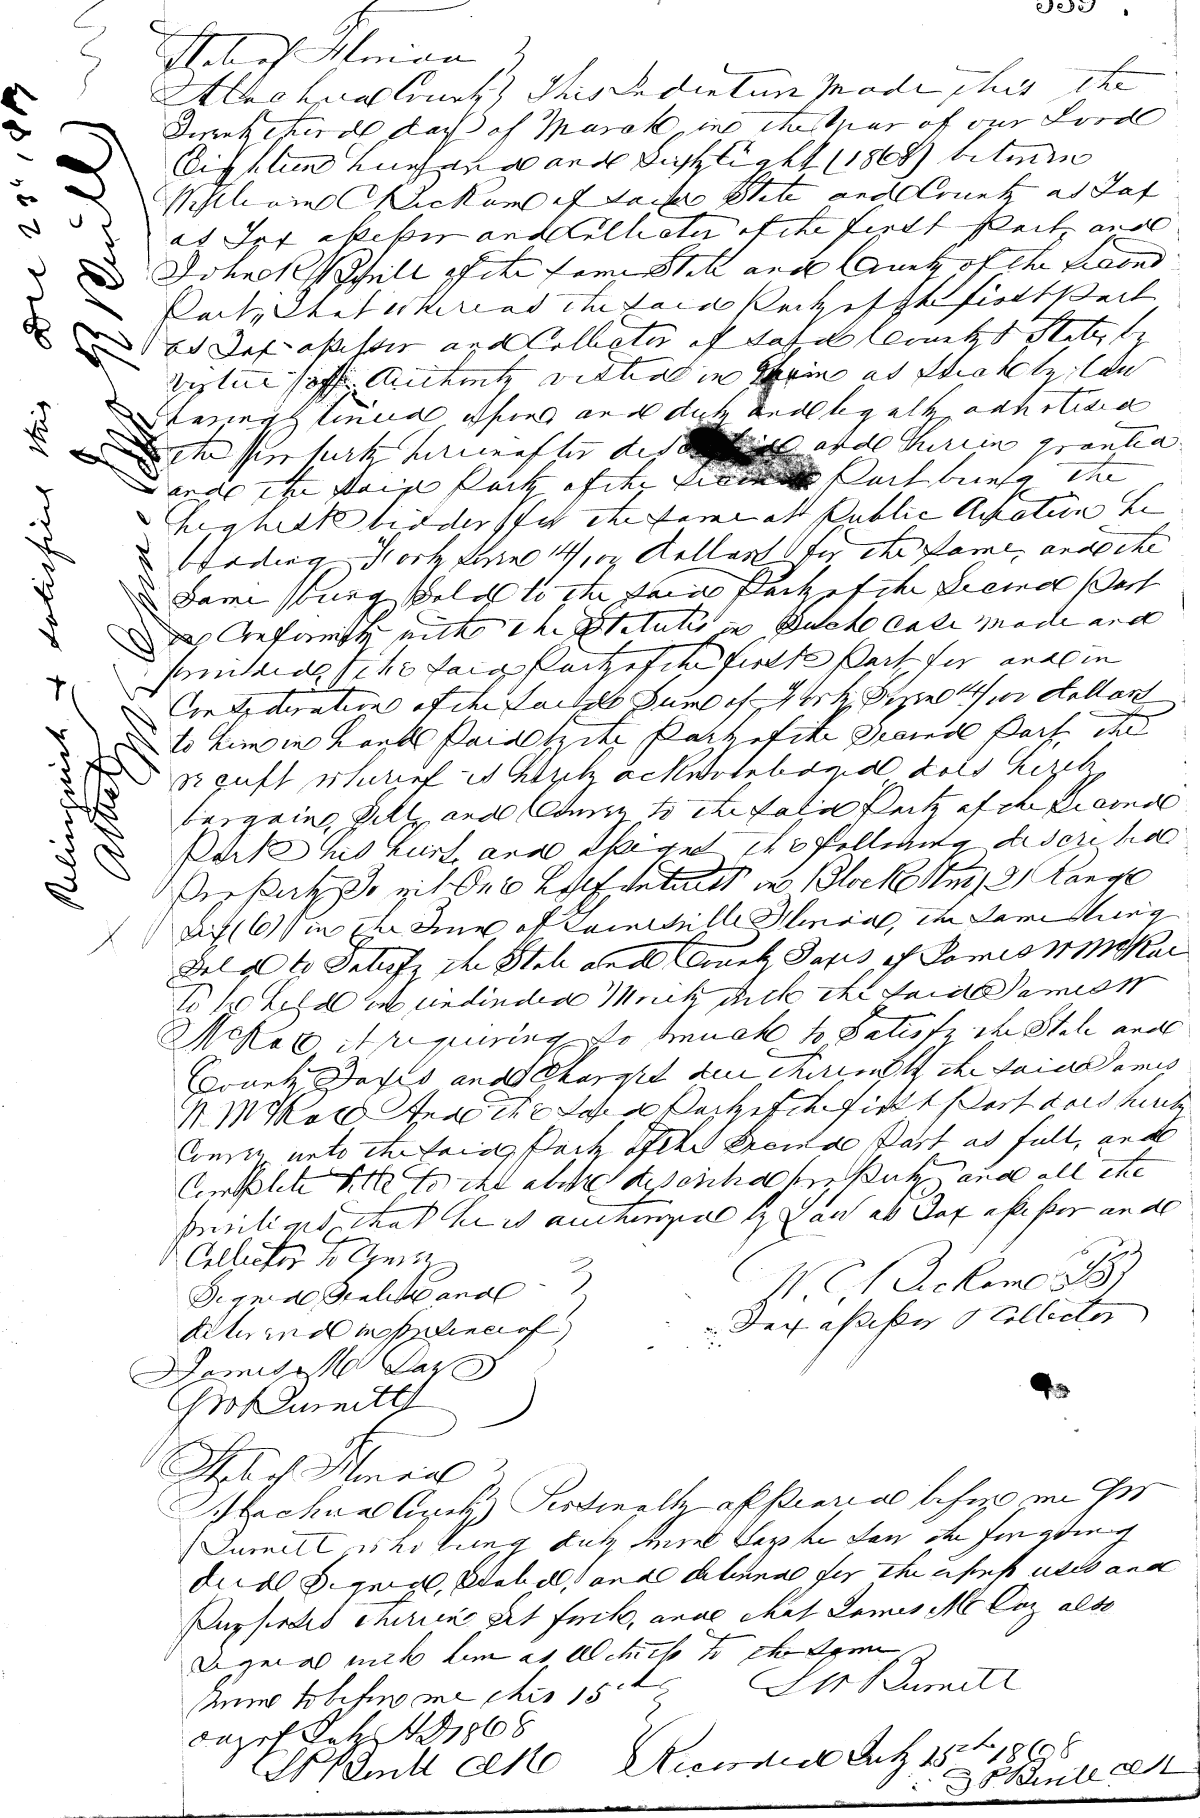 339
State of Florida
Alachua County This Indenture made this the
Twenty third day of March in the Year of our Lord
Eighteen hundred and Sixty Eight (1868) between
William C Beckam of said State and County as Tax
as Tax assessor and Collector of the first Part, and
John R Bevill of the same State and County of the Second
Part, That whereas the said Party of the first Part
as Tax assessor and Collector of said County & State, by
virtue of Authority vested in him as such by law
having levied upon and duly and legally advertised
the Property hereinafter described and herein granted
and the said Party of the Second Part being the
highest bidder for the same at Public Auction he
bidding Forty Seven 14/100 dollars for the same, and the
Same being Sold to the said Party of the Second Part
in Conformity with the Statutes in Such case made and
provided, the said Party of the first Part, for and in
Consideration of the said Sum of Forty Seven 14/100 dollars
to him in hand Paid by the Party of the Second Part, the
receipt whereof is hereby acknowledged does hereby
bargain, Sell, and Convey to the said Party of the Second
Part his heirs, and assigns the following described
Property To wit One half interest in Block 2, Range
Six (6) in the Town of Gainesville Florida, the same being
Sold to Satisfy the State and County Taxes of James W McRae
to be held in undivided Moiety with the said James W
McRae, it requiring So much to Satisfy the State and
County Taxes and Charges due thereon by the said James
W. McRae And the said Party of the first Part does hereby
Convey unto the said Party of the Second Part as full, and
Complete title to the above described property and all the
privileges that he is authorized by Law as Tax assessor and
Collector to Convey
Signed Sealed and
delivered in presence of
W. C. Beckam
Tax assessor & Collector
James M
Burnett
State of Florida
Alachua County Personally appeared before me
Burnett who being duly sworn Says he saw the foregoing
deed Signed, Sealed, and delivered for the uses and
Purposes therein Set forth, and that James M also
Signed with him as Witness to the same
Sworn to before me this 15th
day of July AD 1868
Burnett
Bevill Clk
Recorded July 15th 1868
Bevill Clk
Relinquish & satisfied this Dec 23rd
Attest
Bevill